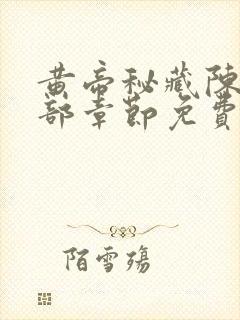 黄帝秘藏陈
部章節免費
陌雪殇